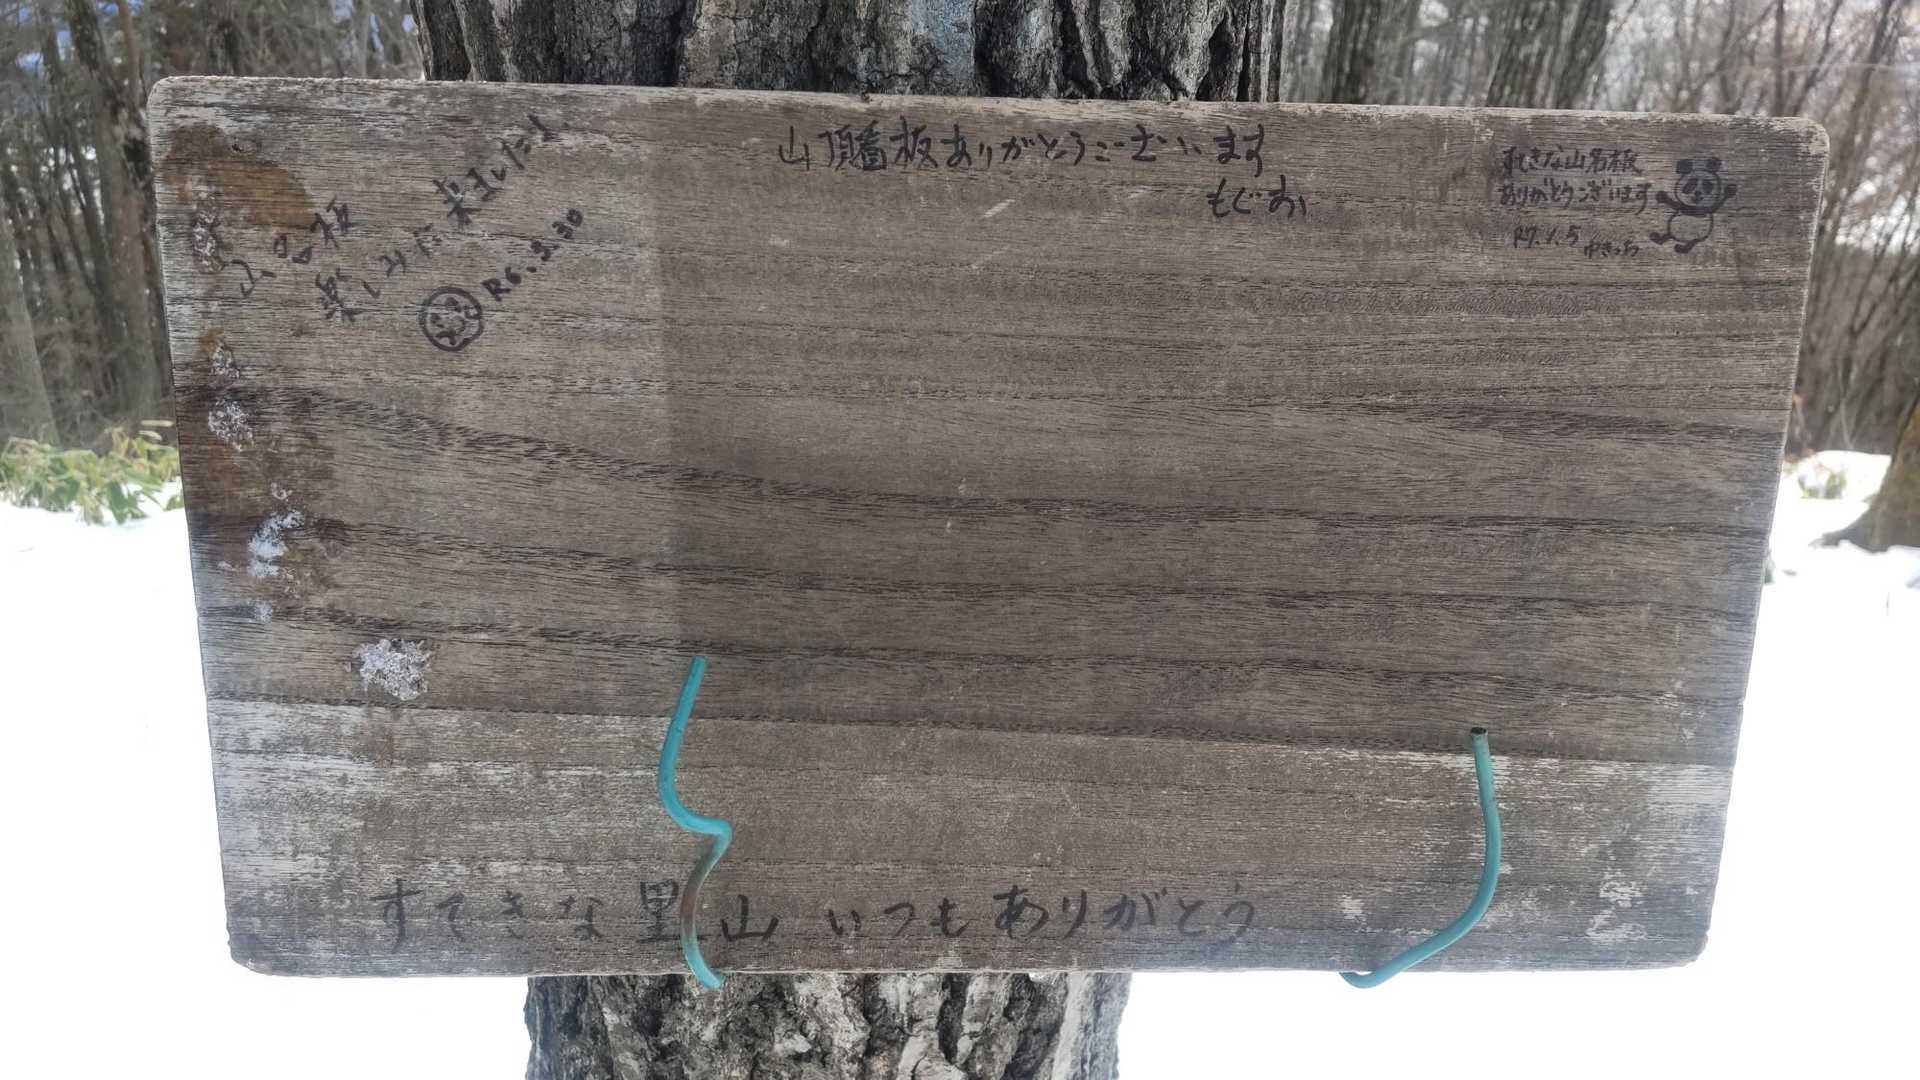 山名板
楽しみに来ました！
R6.3.30
山頂看板ありがとうございます
もぐお
すてきな山名板
ありがとうございます
R7.1.5 ゆきっち
すてきな里山 いつもありがとう